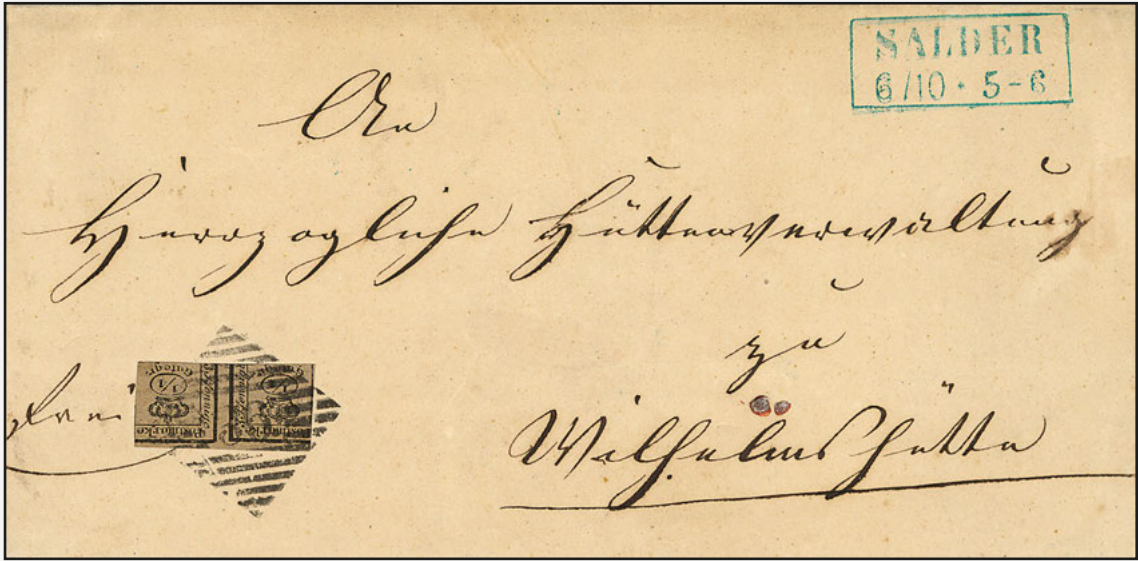 SALDER
6/10 · 5-6
An
Herzogliche Hüttenverwaltung
zu
frei
Wilhelmshütte